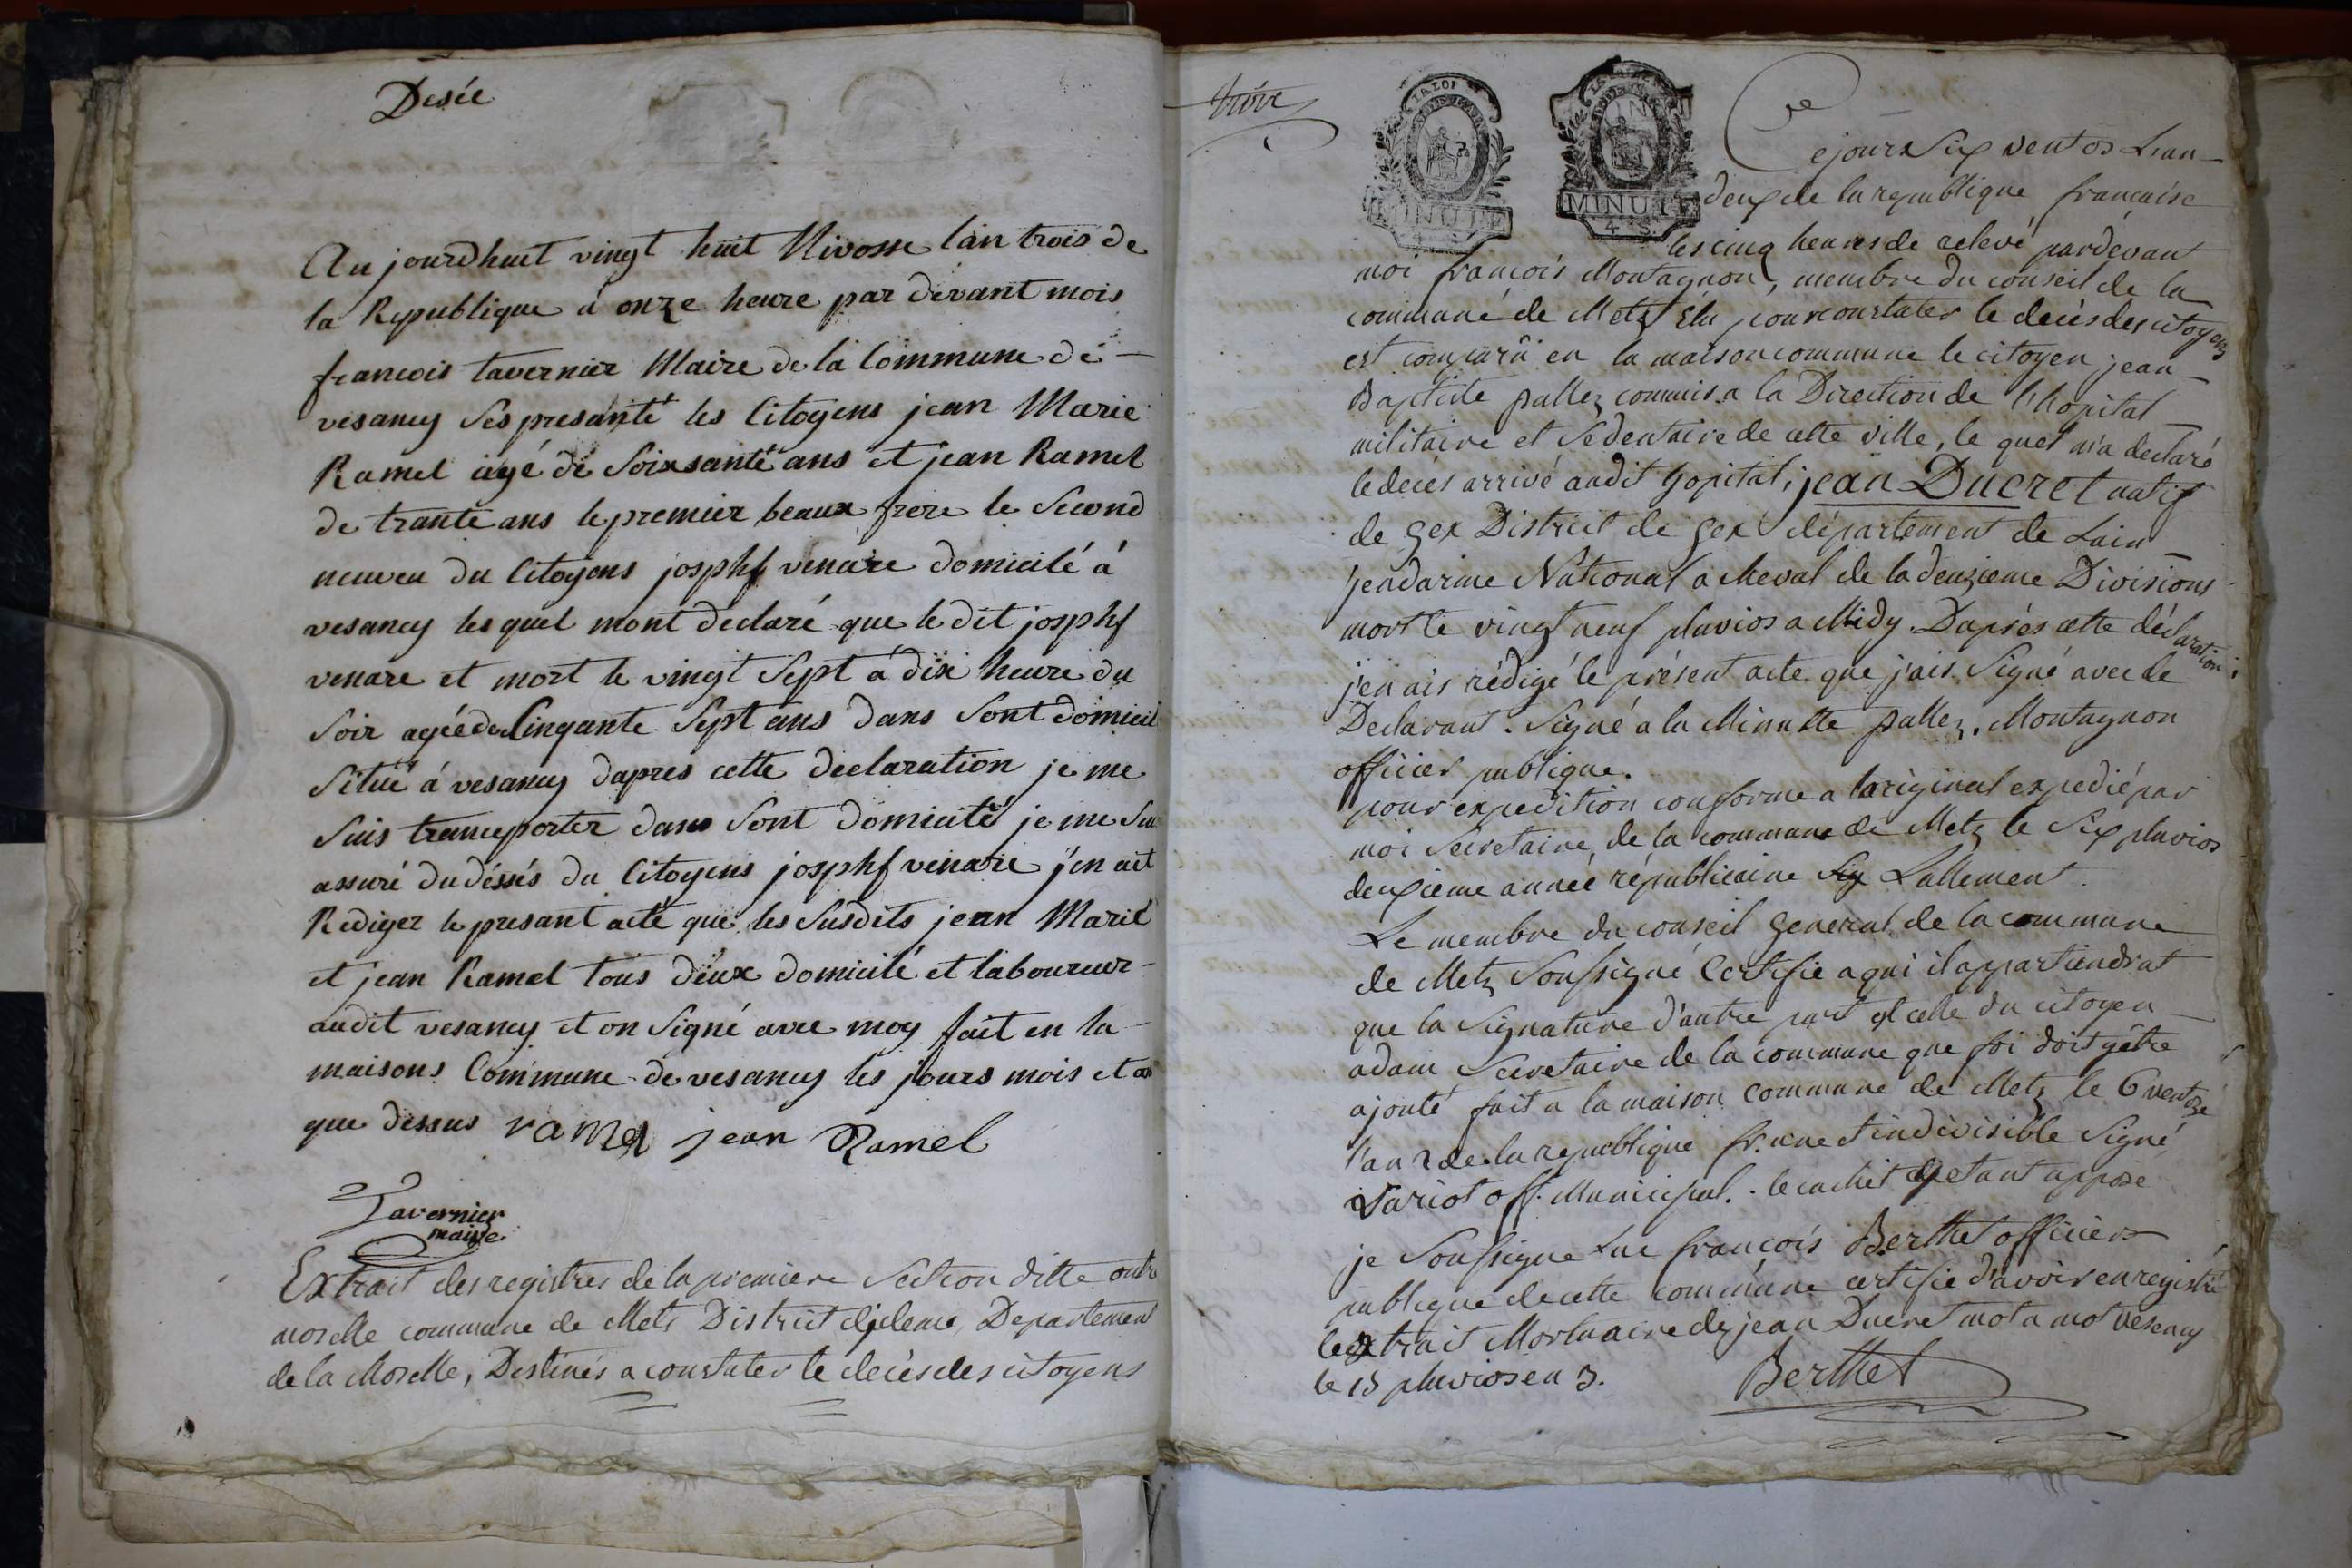 Desée
Aujourdhuit vingt huit Nivosse lan trois de
la Republique à onze heure par devant mois
francois tavernier Maire de la Commune de
vesancy ses presanté les Citoyens jean Marie
Ramel agé de Soixsante ans et jean Ramel
de trante ans le premier beaux frere le Second
neuveu du Citoyens josphf venare domicilé à
vesancy les quel mont declaré que le dit josphf
venare et mort le vingt Sept à dix heure du
Soir agée de Cinqante Sept ans dans Sont domicil
Situé à vesancy dapres cette declaration je me
Suis transporter dans Sont domicité je me Sui
assuré du déssés du Citoyens josphf venare j'en ait
Rediger le presant acte que les Susdits jean Marie
et jean Ramel tous deux domicilé et laboureur
audit vesancy et on Signé avec moy fait en la
maisons Commune de vesancy les jours mois et an
que dessus ramel jean Ramel
Tavernier
maire
Extrait des registres de la premiere Section ditte outre
moselle commune de Mets District Departement
de la Moselle, Destinés a constater le decès des citoyens
LA LOI
MINUTE
MINUTE
4 S.
Ce jour Six ventos Lan
deux de la republique francaise
les cinq heures de relevé pardevant
moi francois Montagnon, membre du conseil de la
commune de Metz Elu pour constater le decès des citoyens
est comparû en la maison commune le citoyen jean
Baptiste pallez commis a la Direction de l'hopital
militaire et Sédentaire de cette ville, le quel m'a declaré
le decès arrivé audit hopital, jean Ducret natif
de gex District de gex département de Lain
gendarme National a cheval de la deuxieme Divisions
mort le vingt neuf pluvios a Midy. Daprés cette déclaration
j'en ais rédigé le présent acte que j'ais Signé avec le
Declarant. Signé a la Minutte pallez. Montagnon
officier publique.
pour expedition conforme a loriginal expedié par
moi Secretaire de la commune de Metz le Six pluvios
deuxieme année républicaine Sig Lallement.
Le membre du conseil general de la commune
de Metz Soussigné Certifie a qui il appartiendrat
que la Signature d'autre part est celle du citoyen
adam Secretaire de la commune que foi doit y être
ajouté fait a la maison commune de Metz le 6 ventose
l'an 2 de la republique fr. une et indivisible Signé
off. Municipal. le cachet apposé
je Soussigne Luc françois Berthet officier
publique de cette commune certifie d'avoir enregistré
lextrait Mortuaire de jean Ducret mot a mot vesancy
le 15 pluvios en 3. Berthet